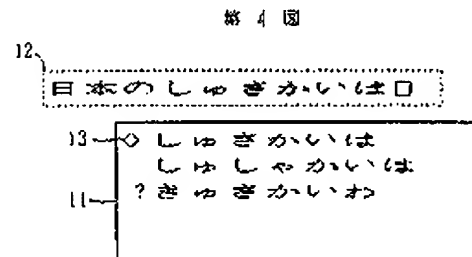 第4図
12
日本のしゅぎかいは□
13 ◇ しゅぎかいは
しゅしゃかいは
11 ?きゅぎかいわ